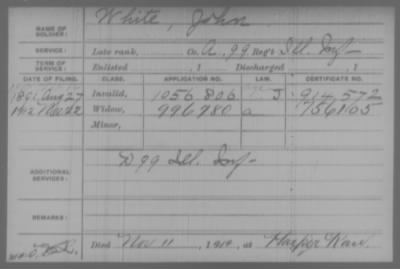 White, John
NAME OF SOLDIER:
SERVICE: Late rank, Co. A, 99 Reg't Ill. Inf
TERM OF SERVICE: Enlisted , 1 Discharged , 1
DATE OF FILING. CLASS. APPLICATION NO. LAW. CERTIFICATE NO.
1891 Aug 27 Invalid, 1056.806 J 914.572
1912 22 Widow, 996780 a 756105
Minor,
ADDITIONAL SERVICES: D 99 Ill. Inf
REMARKS:
Died Nov. 11, 191 , at Harper Kans.